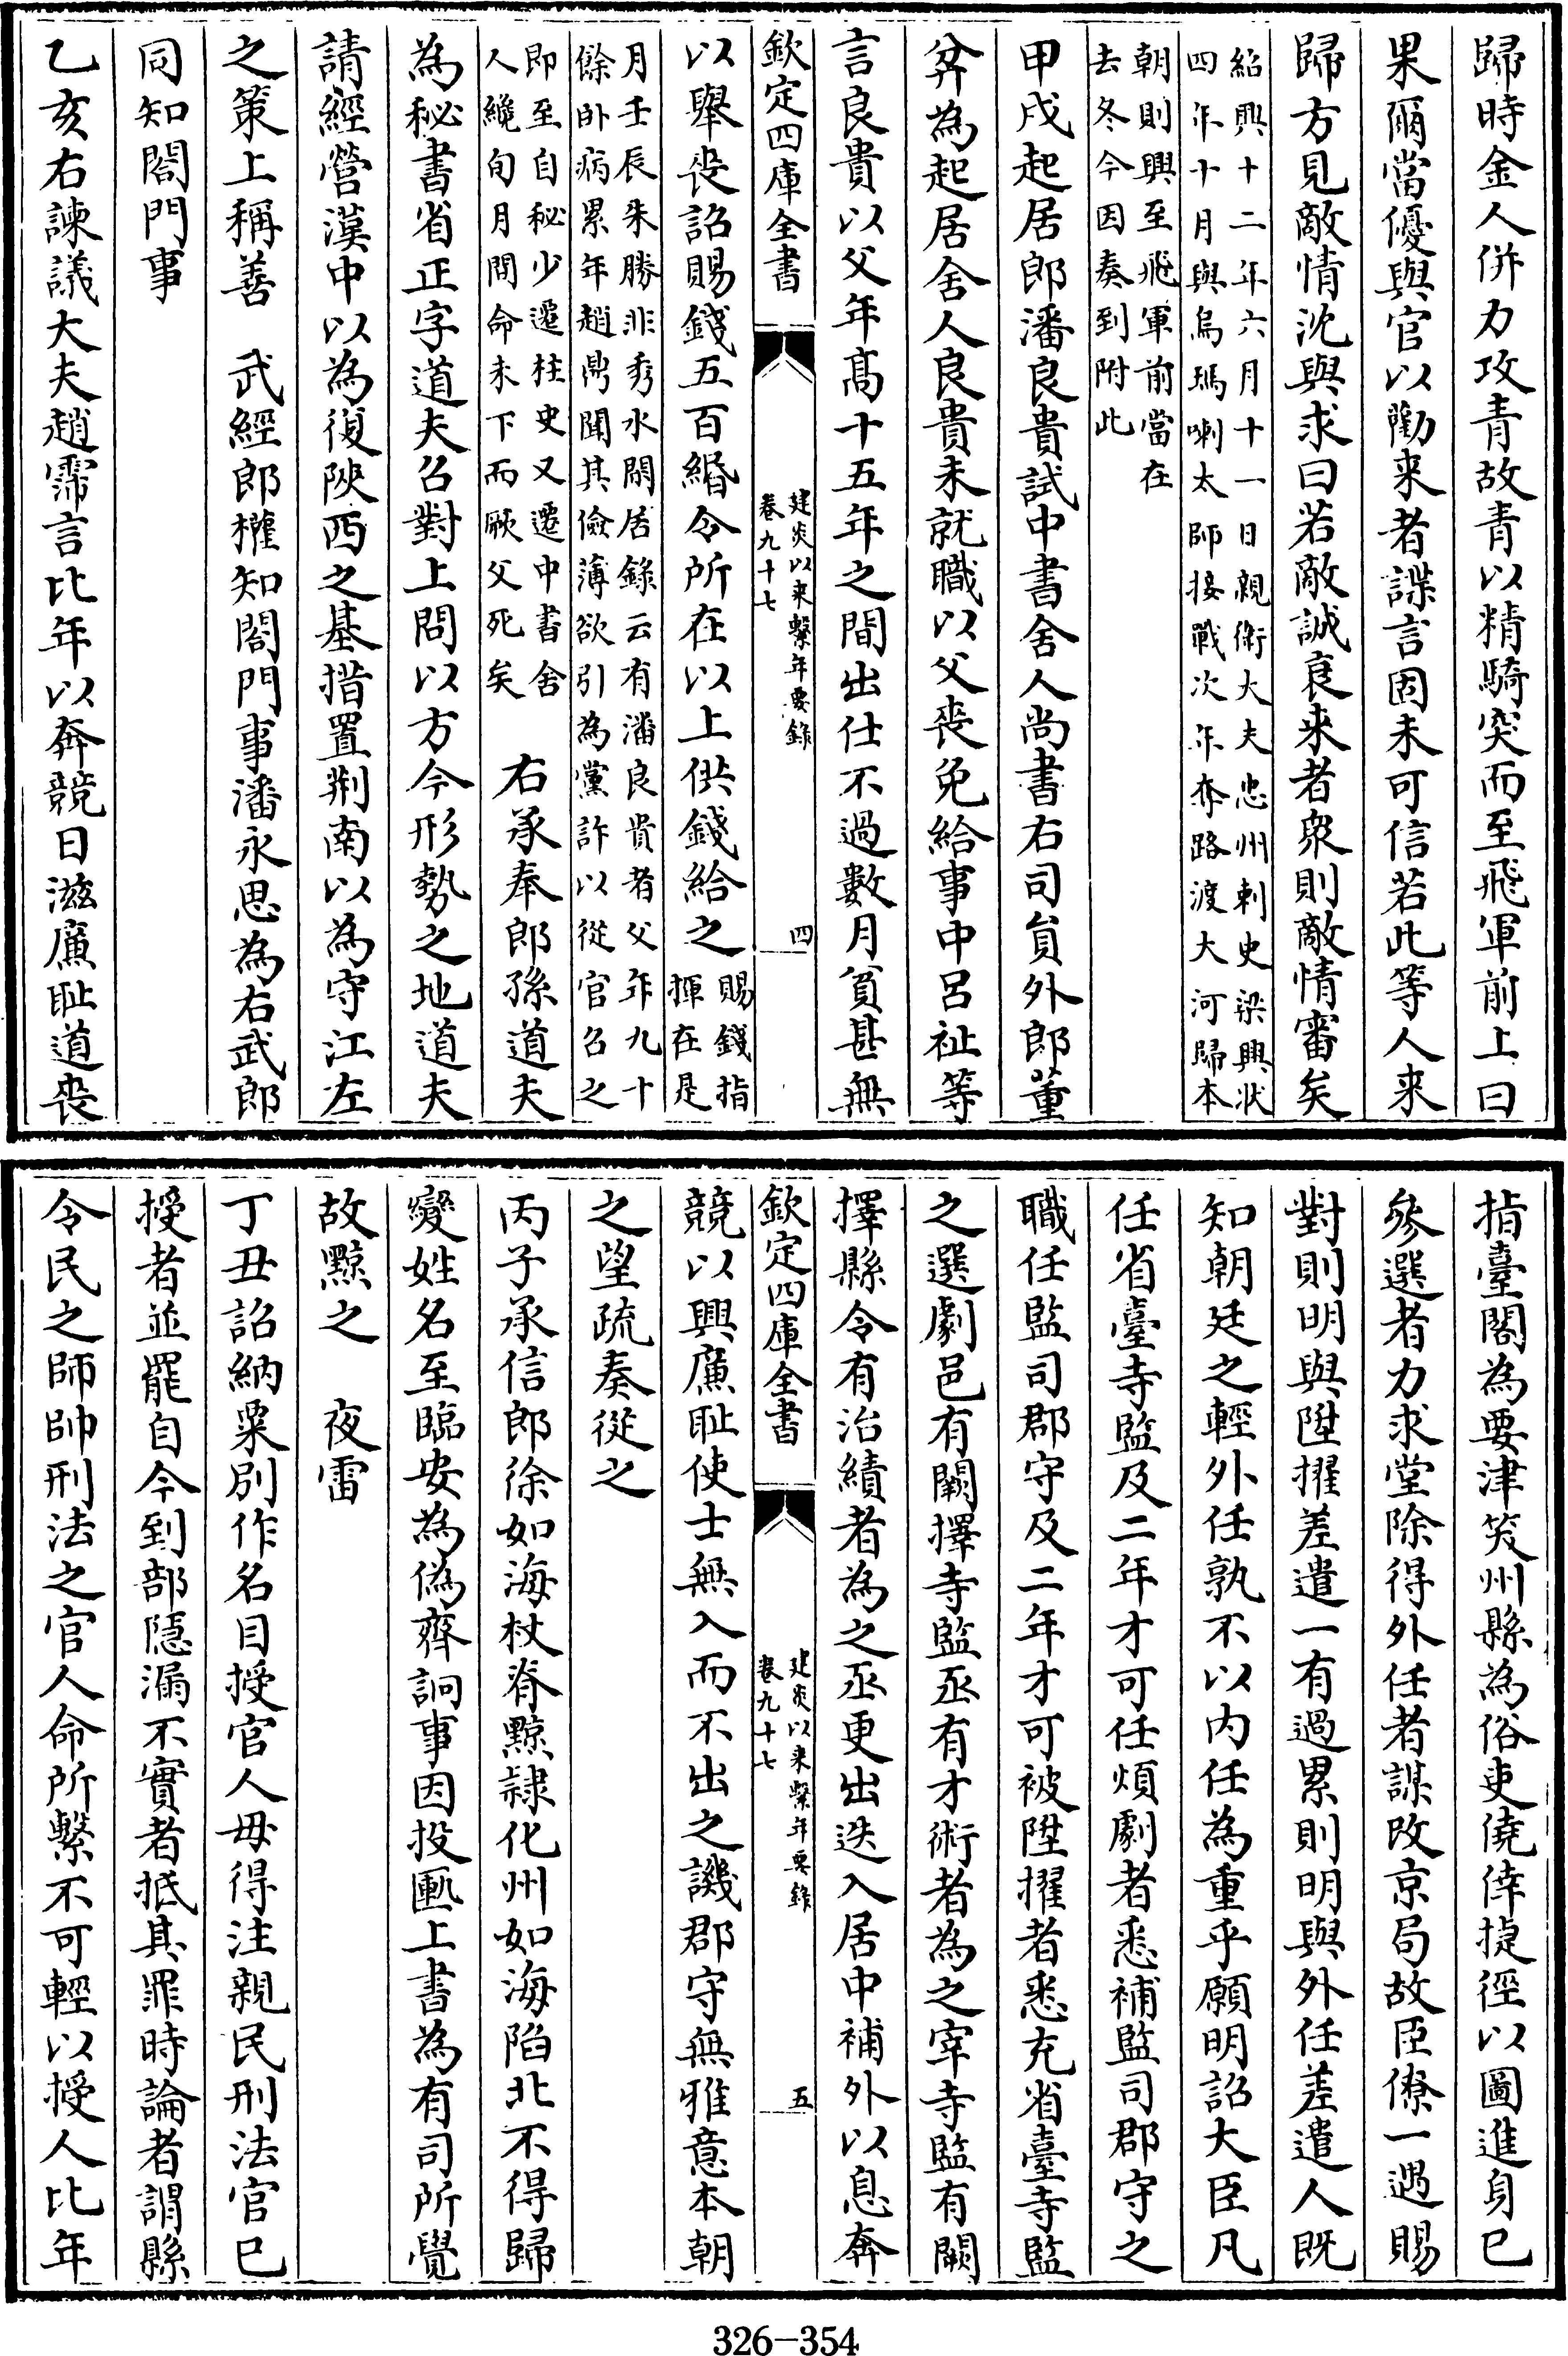 歸時金人併力攻青故青以精騎突而至飛軍前上曰
果爾當優與官以勸来者諜言固未可信若此等人来
歸方見敵情沈與求曰若敵誠衰来者衆則敵情審矣
紹興十二年六月十一日親衛大夫忠州刺史梁興状
四年十月與烏瑪喇太師接戰次年奪路渡大河歸本
朝則興至飛軍前當在
去冬今因奏到附此
甲戌起居郎潘良貴試中書舍人尚書右司員外郎董
弅為起居舍人良貴未就職以父喪免給事中呂祉等
言良貴以父年髙十五年之間出仕不過數月貧甚無
欽定四庫全書
建炎以来繫年要録
卷九十七
四
以舉喪詔賜錢五百緡令所在以上供錢給之
賜錢指
揮在是
月壬辰朱勝非秀水閒居錄云有潘良貴者父年九十
餘卧病累年趙鼎聞其儉薄欲引為黨詐以從官召之
即至自秘少遷柱史又遷中書舍
人纔旬月間命未下而厥父死矣
右承奉郎孫道夫
為秘書省正字道夫召對上問以方今形勢之地道夫
請經營漢中以為復陜西之基措置荆南以為守江左
之策上稱善　武經郎權知閤門事潘永思為右武郎
同知閤門事
乙亥右諫議大夫趙霈言比年以奔競日滋廉恥道喪
指臺閣為要津笑州縣為俗吏僥倖捷徑以圖進身已
參選者力求堂除得外任者謀改京局故臣僚一遇賜
對則明與陞擢差遣一有過累則明與外任差遣人既
知朝廷之輕外任孰不以内任為重乎願明詔大臣凡
任省臺寺監及二年才可任煩劇者悉補監司郡守之
職任監司郡守及二年才可被陞擢者悉充省臺寺監
之選劇邑有闕擇寺監丞有才術者為之宰寺監有闕
擇縣令有治績者為之丞更出迭入居中補外以息奔
欽定四庫全書
建炎以来繫年要錄
卷九十七
五
競以興廉恥使士無入而不出之譏郡守無雅意本朝
之望疏奏從之
丙子承信郎徐如海杖脊黥隷化州如海陷北不得歸
變姓名至臨安為偽齊詗事因投匭上書為有司所覺
故黥之　夜雷
丁丑詔納粟别作名目授官人毋得注親民刑法官已
授者並罷自今到部隱漏不實者抵其罪時論者謂縣
令民之師帥刑法之官人命所繫不可輕以授人比年
326-354